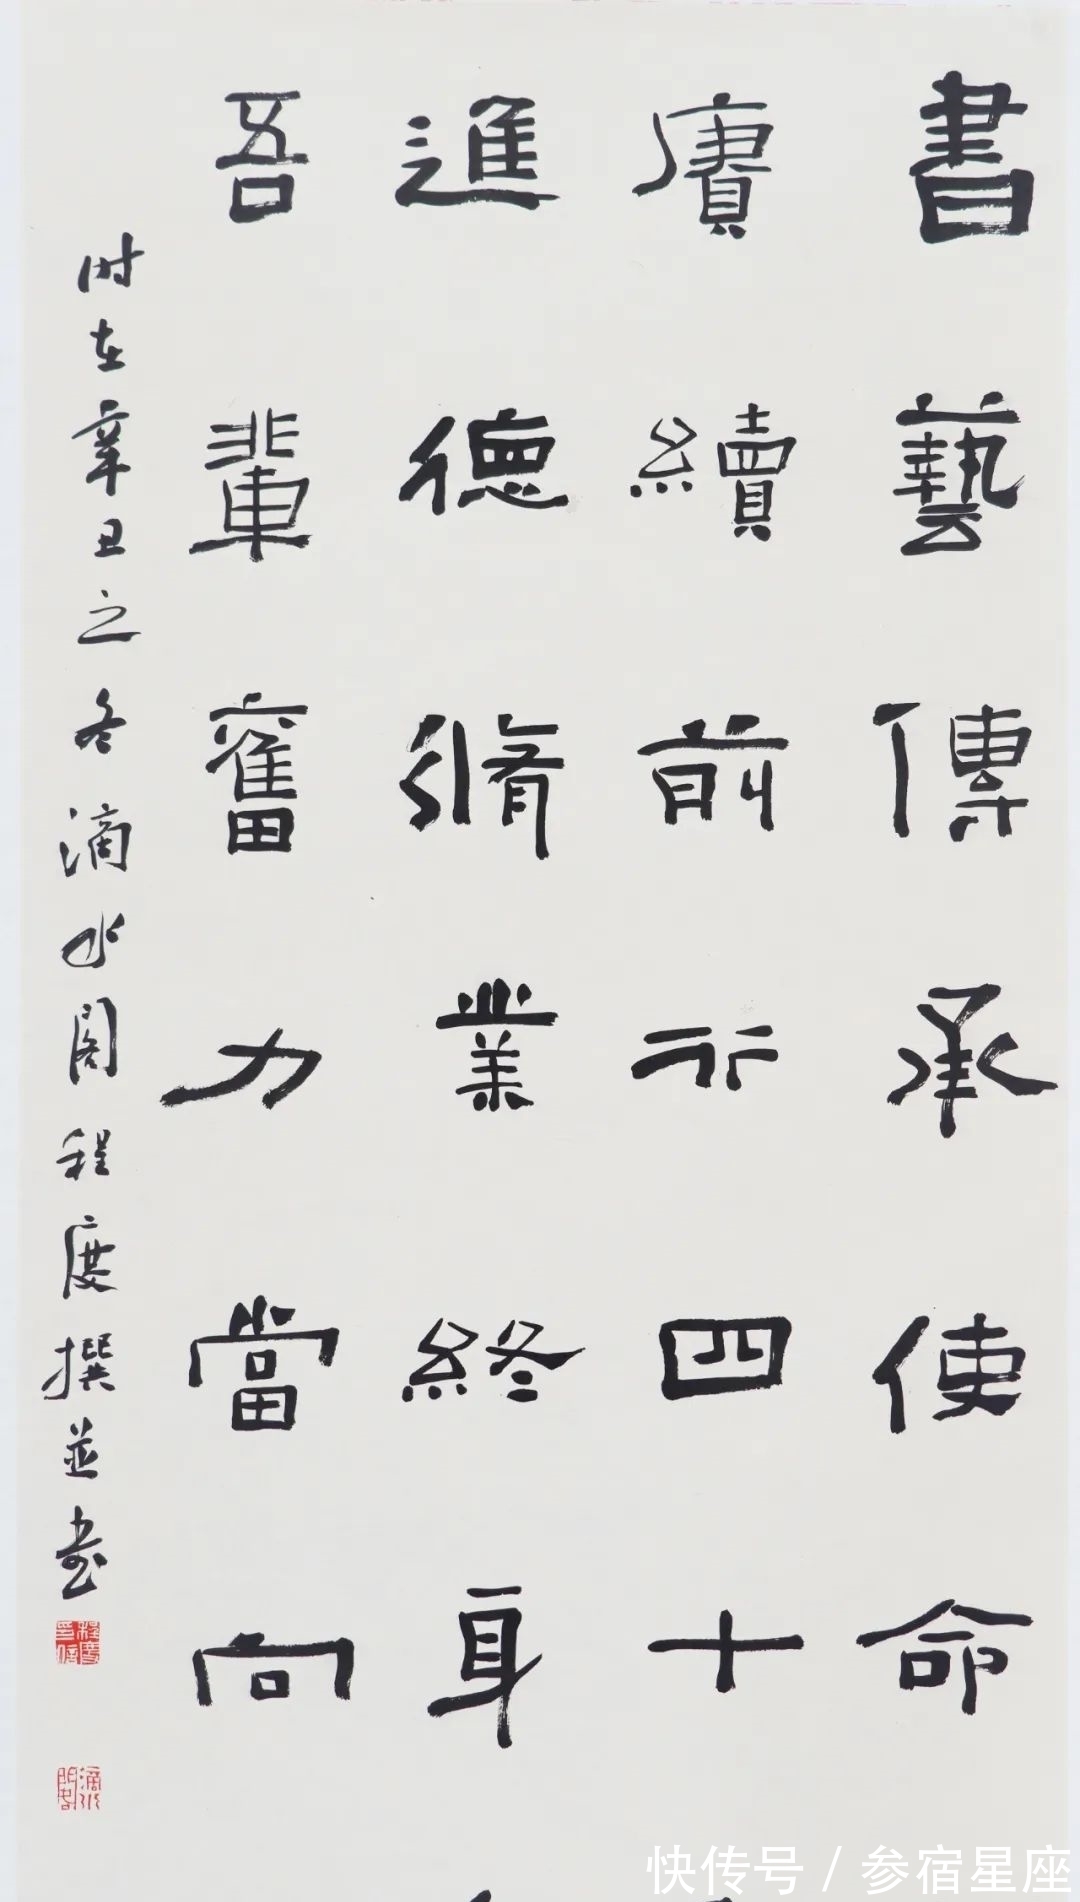 書藝傳承使命
賡續前行四十
進德脩業終身
吾輩奮力當向
时在辛丑之冬滴水阁程度撰並书
程度之信
滴水阁
快传号 / 参宿星座